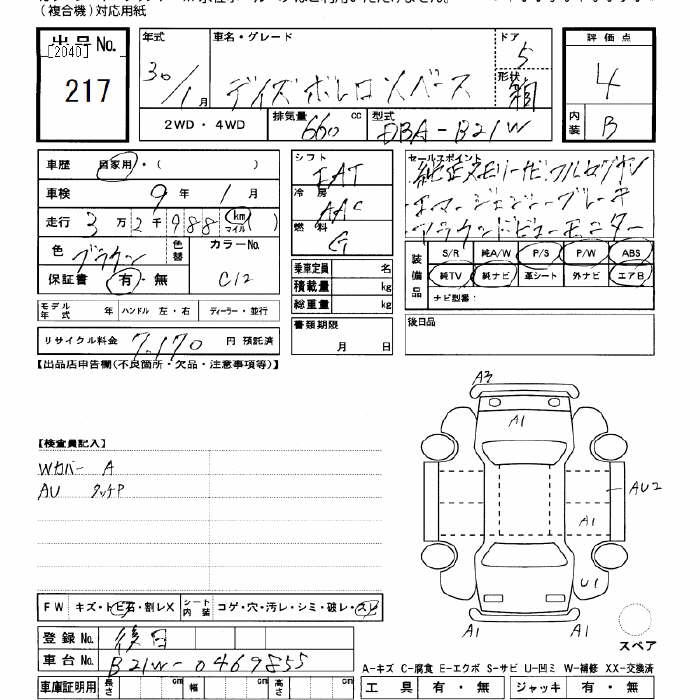 (複合機)対応用紙
出品No.
[2040]
217
年式 30/1月
車名・グレード デイズ ボレロ Xベース
ドア 5
形状 箱
評価点 4
内装 B
2WD・4WD
排気量 660 cc
型式 DBA-B21W
車歴 自家用・( )
車検 9年 1月
走行 3万2千988 km マイル ( )
色 ブラウン
色替
カラーNo. C12
保証書 有・無
モデル年式 年
ハンドル 左・右
ディーラー・並行
リサイクル料金 7,170 円 預託済
シフト FAT
冷房 AAC
燃料 G
乗車定員 名
積載量 kg
総重量 kg
書類期限
月 日
セールスポイント
純正メモリーナビ フルセグTV
・エマージェンシーブレーキ
・アラウンドビューモニター
装備品
S/R 純A/W P/S P/W ABS
純TV 純ナビ 革シート 外ナビ エアB
ナビ型番:
後日品
【出品店申告欄(不良箇所・欠品・注意事項等)】
【検査員記入】
Wカバー A
AU タッチP
A3
A1
AU2
A1
U1
A1
A1
スペア
FW キズ・トビ石・割レX
シート内装 コゲ・穴・汚レ・シミ・破レ・スレ
登録No. 後日
車台No. B21W-0469855
車庫証明用 長さ cm 幅 cm 高さ cm
A-キズ C-腐食 E-エクボ S-サビ U-凹ミ W-補修 XX-交換済
工具 有・無 ジャッキ 有・無